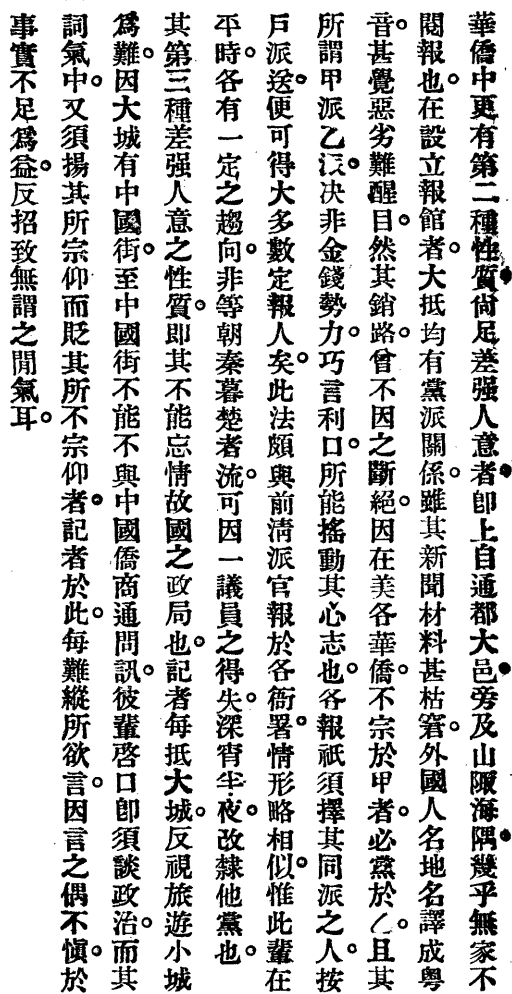 華僑中更有第二種性質尙足差强人意者卽上自通都大邑旁及山陬海隅幾乎無家不
閱報也。在設立報館者。大抵均有黨派關係。雖其新聞材料甚枯窘。外國人名地名譯成粤
音。甚覺惡劣難醒目。然其銷路。曾不因之斷絕。因在美各華僑。不宗於甲者。必黨於乙。且其
所謂甲派乙派。决非金錢勢力。巧言利口。所能搖動其心志也。各報祇須擇其同派之人。按
戶派送。便可得大多數定報人矣。此法頗與前淸派官報於各衙署。情形略相似。惟此輩在
平時。各有一定之趨向。非等朝秦暮楚者流。可因一議員之得失。深宵半夜。改隸他黨也。
其第三種差强人意之性質。卽其不能忘情故國之政局也。記者每抵大城。反視旅遊小城
爲難。因大城有中國街。至中國街不能不與中國僑商通問訊。彼輩啓口卽須談政治。而其
詞氣中。又須揚其所宗仰而貶其所不宗仰者。記者於此。每難縱所欲言。因言之偶不愼。於
事實不足爲益。反招致無謂之閒氣耳。